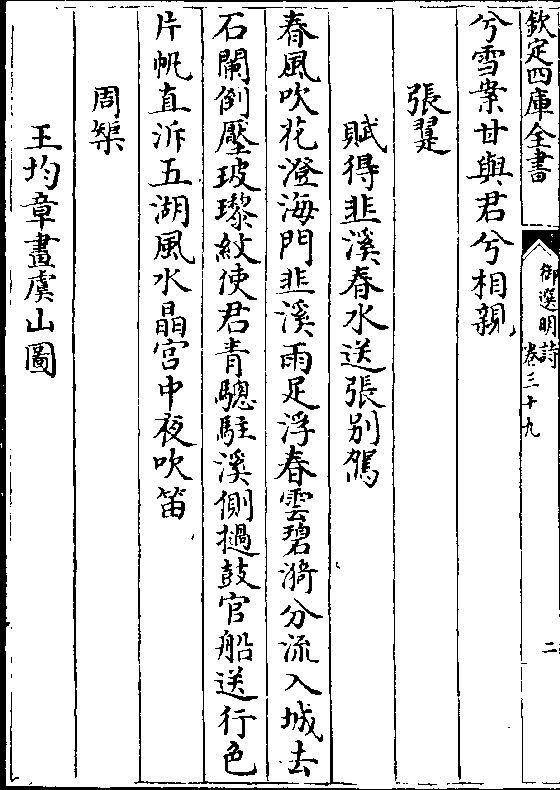 欽定四庫全書
御選明詩
卷三十九
二
兮雪案甘與君兮相親
張翨
賦得韭溪春水送張别駕
春風吹花澄海門韭溪雨足浮春雲碧漪分流入城去
石闌倒壓玻瓈紋使君青驄駐溪側撾鼓官船送行色
片帆直泝五湖風水晶宫中夜吹笛
周槊
王均章畫虞山圖